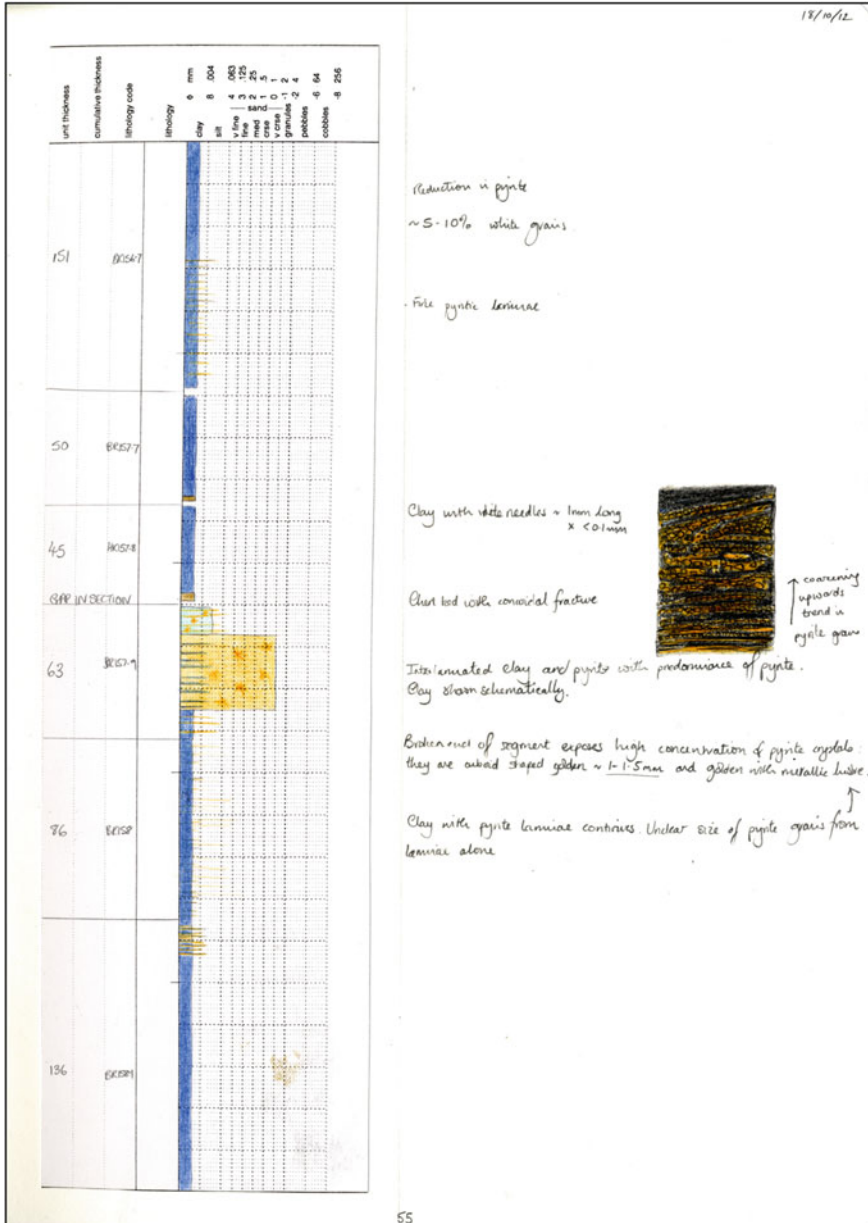 18/10/12
unit thickness
cumulative thickness
lithology code
lithology
ϕ mm
clay
8 .004
silt
4 .063
v fine
3 .125
fine
2 .25
med
1 .5
crse
0 1
v crse
sand
-1 2
granules
-2 4
pebbles
-6 64
cobbles
-8 256
151
50
BR157.7
45
GAP IN SECTION
63
BR157.9
86
BR158
136
Reduction in pyrite
~5-10% white grains
- Fine pyritic laminae
Clay with white needles ~ 1mm long
x <0.1mm
Chert bed with concoidal fracture
coarsening
upwards
trend in
pyrite grains
Interlaminated clay and pyrite with predominance of pyrite.
Clay shown schematically.
Broken end of segment exposes high concentration of pyrite crystals:
they are cuboid shaped golden ~ 1-1.5mm and golden with metallic lustre.
Clay with pyrite laminae continues. Unclear size of pyrite grains from
laminae alone
55